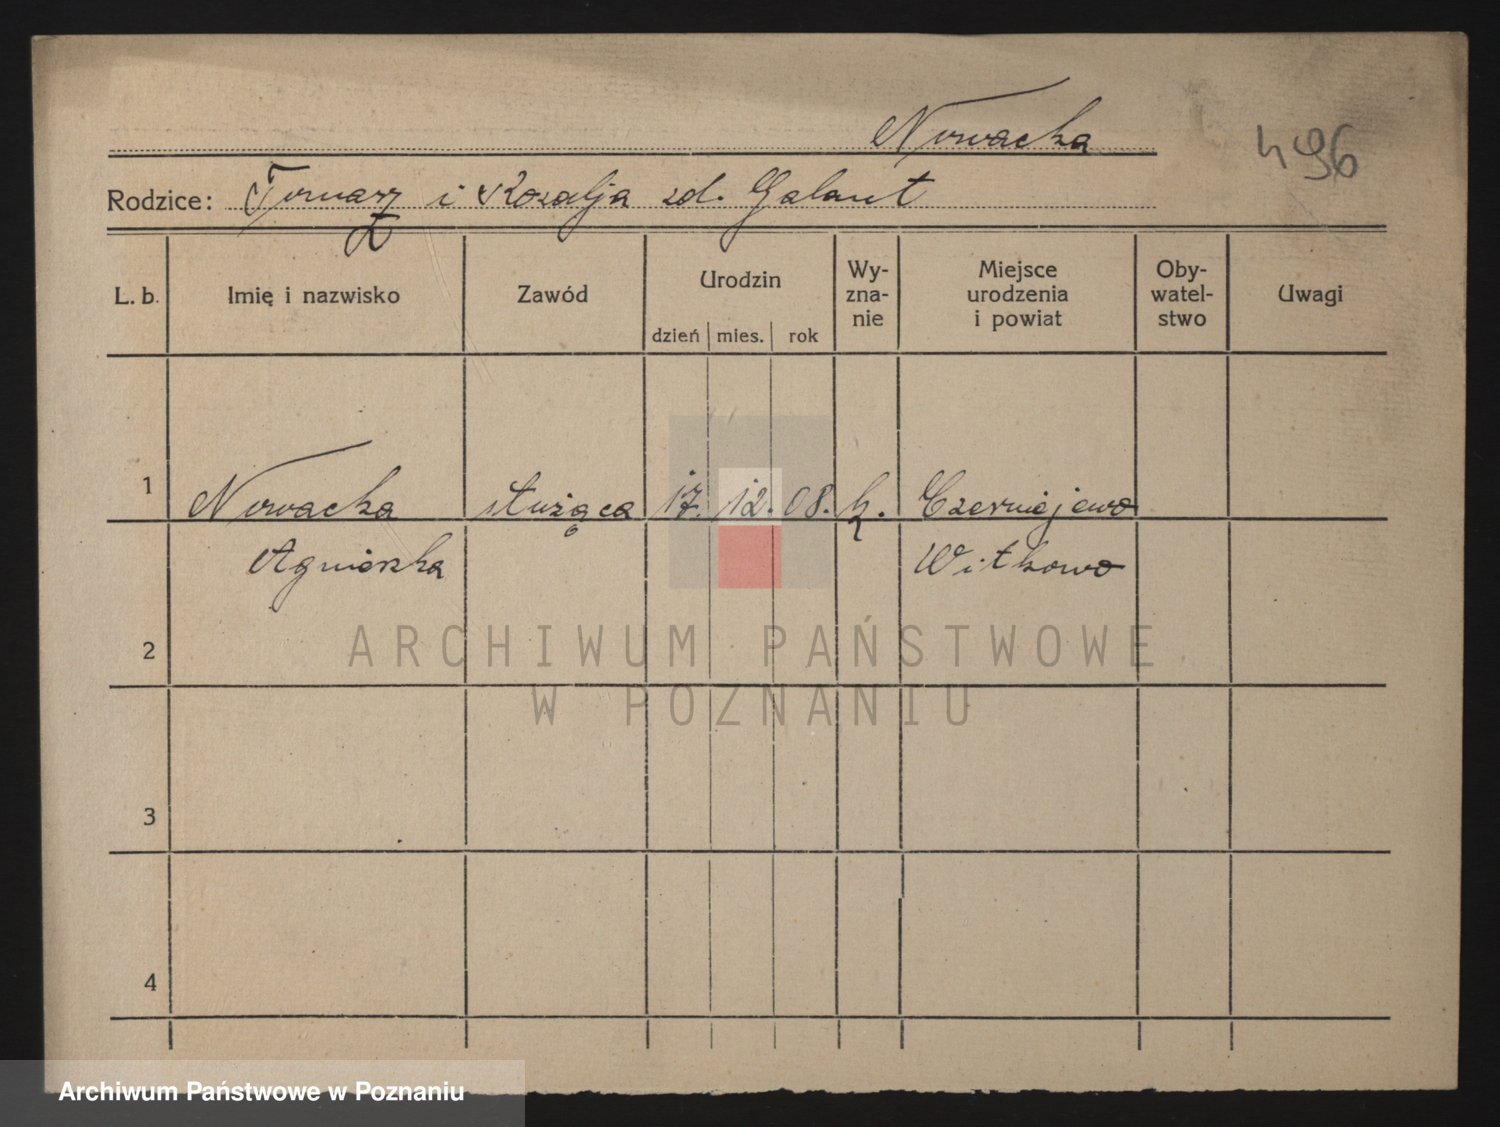 Nowacka
496
Rodzice: Tomasz i Rozalja zd. Galant
L. b. Imię i nazwisko Zawód Urodzin dzień mies. rok Wy-zna-nie Miejsce urodzenia i powiat Oby-watel-stwo Uwagi
1 Nowacka służąca 17. 12. 08. k. Czerniejewo
Agnieszka Witkowo
2
ARCHIWUM PAŃSTWOWE
W POZNANIU
3
4
Archiwum Państwowe w Poznaniu